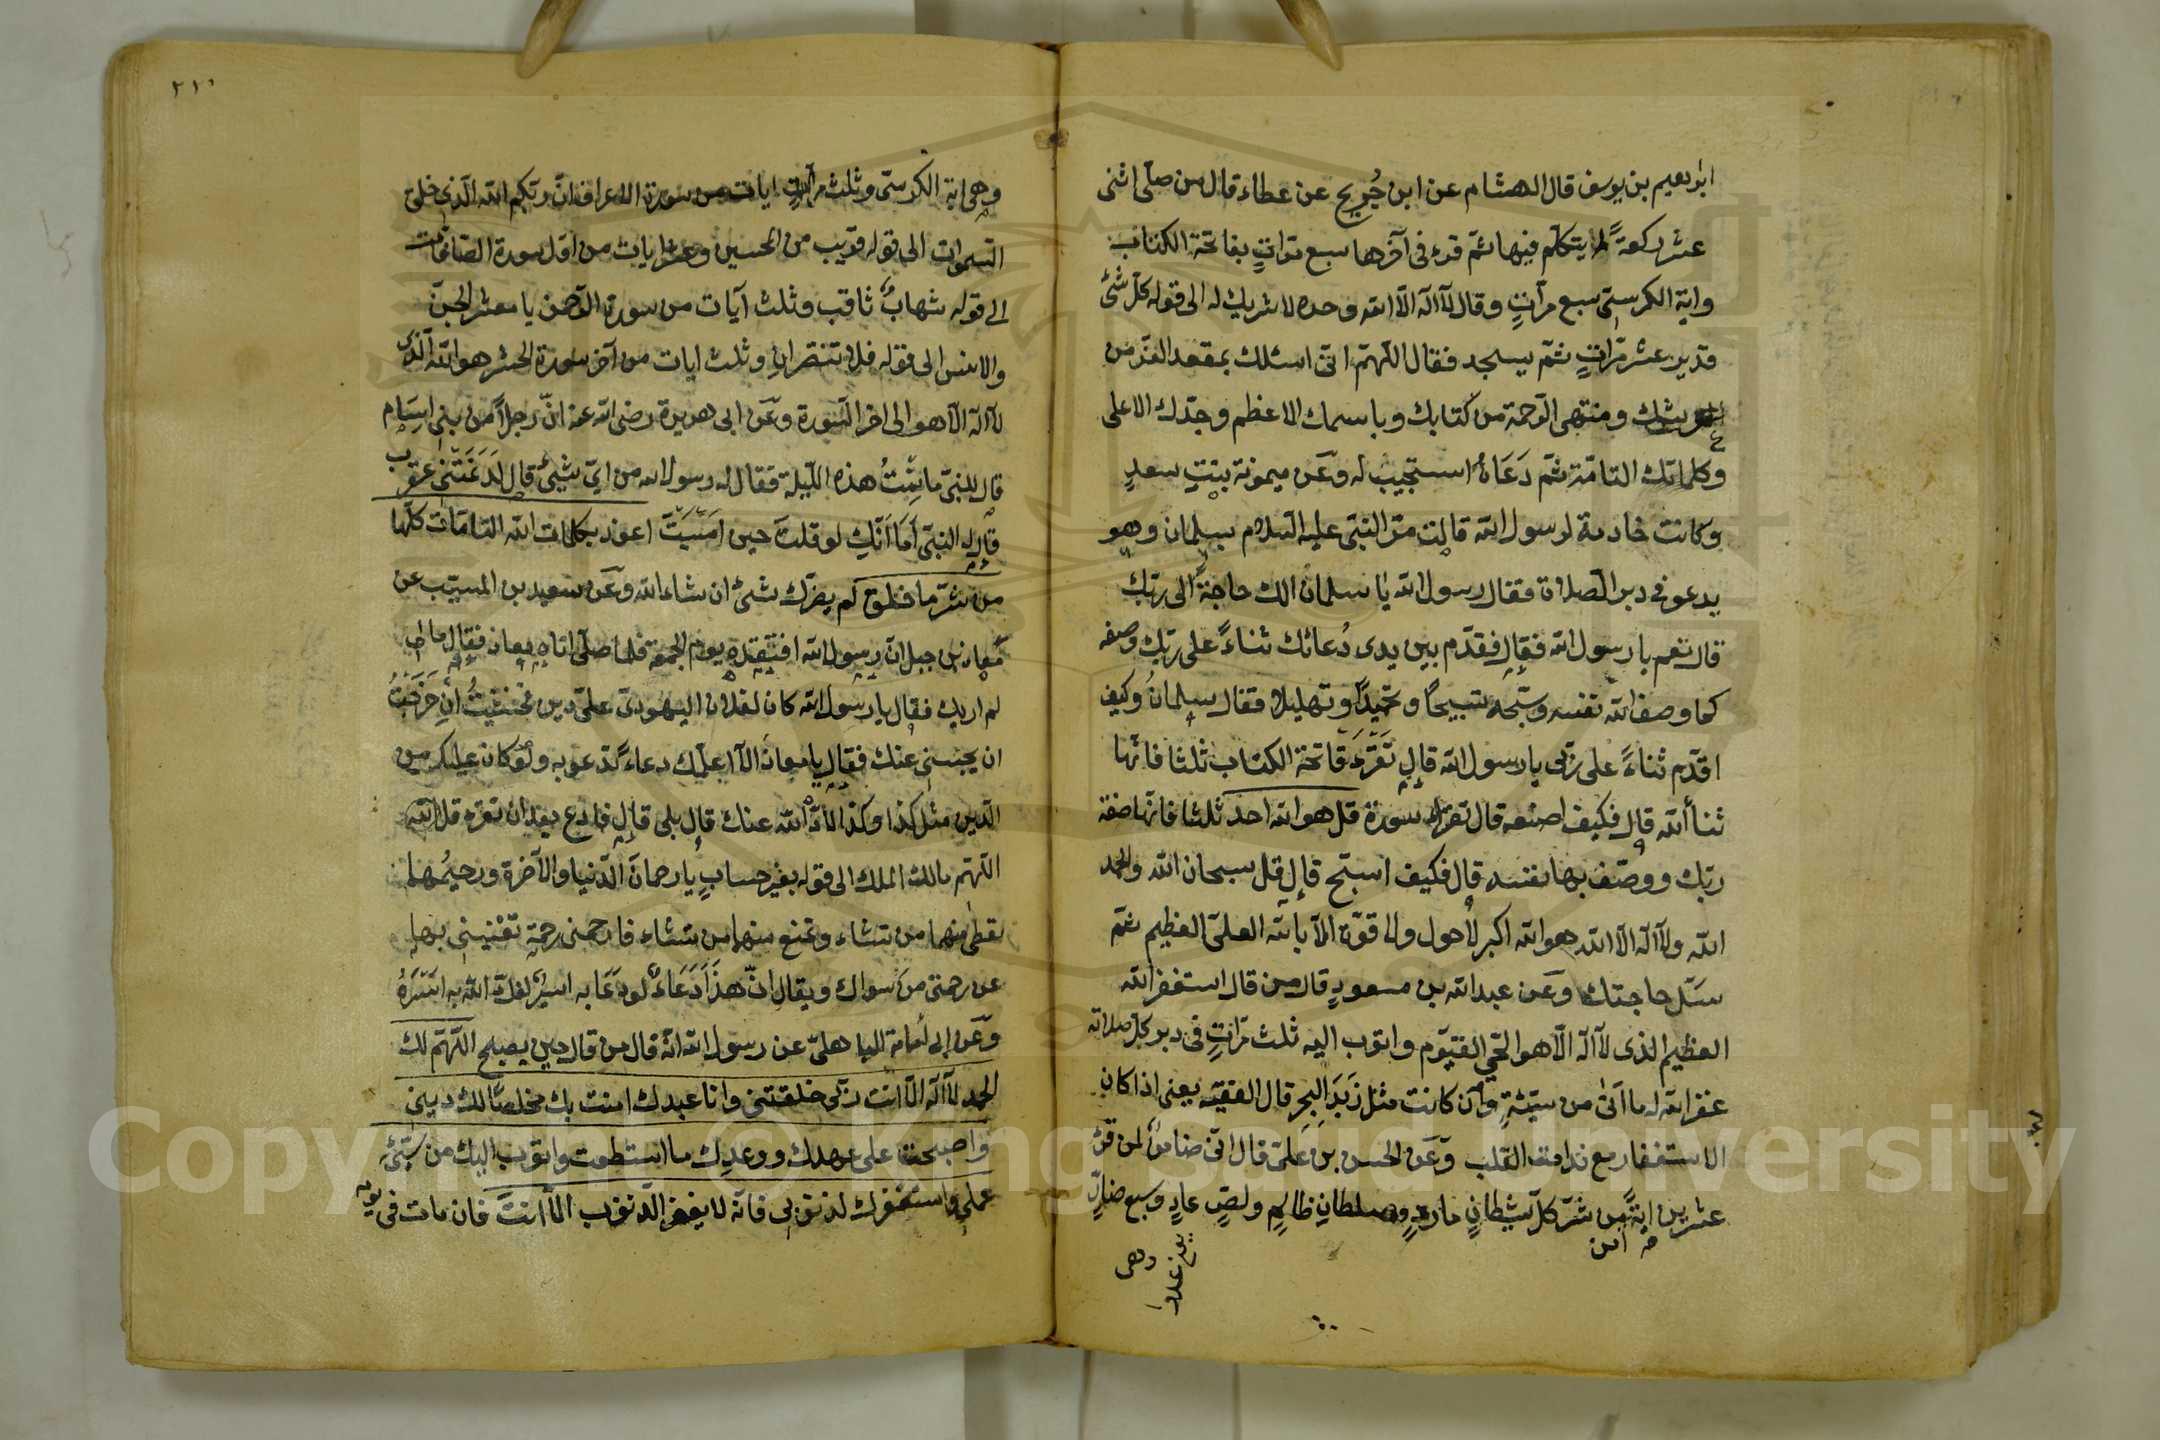 ابراهيم بن يوسف قال الهشام عن ابن جُريج عن عطاء قال من صلّى اثنى
عشر ركعةً لا يتكلّم فيها ثمّ قرء فى آخرها سبع مرّاتٍ بفاتحة الكتاب
واية الكرسىّ سبع مرآتٍ وقال لآ اله الّا الله وحده لا شريك له الى قوله كلّ شئ
قدير عشر مرّاتٍ ثمّ يسجد فقال اللّهمّ انّى اسئلك بمقعد العزّ من
عرشك ومنتهى الرّحمة من كتابك وباسمك الاعظم وجدّك الاعلى
وكلماتك التامّة ثمّ دَعَاهُ استجيب له وعَن ميمونة بنتِ سعدٍ
وكانت خادمة لرسول الله قالت مرّ النبّى عليه السّلام بسلمان وهو
يدعو فى دبر الصّلاة فقال رسول الله يا سلمان الك حاجةً الى ربّك
قال نعم يا رسول الله فقال فقدّم بين يدى دُعائك ثناءً على ربّك وصفه
كما وصف الله نفسه وسبّحه تسبيحًا وتحميدًا وتهليلا فقال سلمانُ وكيف
اقدّم ثناءً على ربّى يا رسول الله قال تَقرَء فاتحة الكتاب ثلثا فانّها
ثناأ الله قال فكيف اصفه قال تقرء سورة قل هو الله احد ثلثا فانّها صفة
ربّك ووصّف بها نفسه قال فكيف اسبّح قال قل سبحان الله والحمد
الله ولآ اله الّا الله هو الله اكبر لا حول ولا قوّة الّا بالله العلىّ العظيم ثمّ
سَل حاجتك وعَن عبد الله بن مسعودٍ قال من قال استغفر الله
العظيم الذى لآ اله الّا هو الحّى القيّوم واتوب اليه ثلث مرّاتٍ فى دبر كلّ صلاته
غفر الله له ما اتى من سيّئةٍ وان كانت مثل زَبَدَ البحرِ قال الفقيه يعنى اذا كان
الاستغفار مع ندامة القلب وعَن الحسن بن علىّ قال انّى ضامنٌ لمن قرء
عشرين ايةً من شرّ كلّ شيطانٍ ماردٍ وسلطانٍ ظالمٍ ولصٍّ عادٍ وسبع ضارٍّ
وهى
٢١٠
وهى اية الكرسىّ وثلث ايات من سورة الاعراف انّ ربّكم الله الّذى خلق
السّموات الى قوله قريب من المحسين وعشر ايات من اوّل سورة الصّافّات
الى قوله شهابٌ ثاقب وثلث آيات من سورة الرّحمن يا معشر الجنّ
والانس الى قوله فلا تنتصران وثلث ايات من آخر سورة الحشر هو الله الّذى
لآ اله الّا هو الى اخر السّورة وعَن ابى هريرة رضى الله عنه انّ رجلًا من بنى اسلم
قال للنبّى ما نِمْتُ هذه اللّيلة فقال له رسول الله من اىّ شيئٍ قال لَدَغَتْنى عقرب
قال له النبّى اَمَا اَنّكِ لو قلتَ حين اَمْسَيْتَ اعوذ بكلمات الله التامّات كلّها
من شرّ ما خلق لم يضرّك شئ ان شاء الله وعَن سعيد بن المسيّب عن
معاذ بن جبل انّ رسول الله افتقده يوم الجمعة فلمّا صلّى اتاه معاذ فقال ما لى
لم اريك فقال يا رسول الله كان لفلان اليهودىّ علىّ دين فخشيتُ اِنْ خَرَجْتُ
ان يحبسنى عنك فقال يا معاذ الّا اعلّمك دعاءً تدعو به ولو كان عليك من
الدّين مثل كذا وكذا لادّاه الله عنك قال بلى قال فادع بعد ان تقرء قل
اللّهمّ مالك الملك الى قوله بغير حسابٍ يا رحمانَ الدّنيا والآخرة ورحيمُهما
تعطى منهما من تشاء وتمنع منهما من تشاء فارحمنى رحمة تغنينى بها
عن رحمتى من سواك ويقال انّ هذَا دَعَاءٌ لو دَعَا به اسيرٌ لفكّ الله به اَسْرَهُ
وعَن ابى اُمامة الباهلىّ عن رسول الله انّه قال من قال حين يصبح اللّهمّ لك
الحمد لآ اله الّا انت ربّى خلقتنى وانا عبدك امنت بك مخلصًا لك دينى
واصبحت على عهدك ووعدك ما استطعت واتوب اليك من سيّئ
عملى واستغفرك لذنوبى فانّه لا يغفر الذّنوب الّا انتَ فان مات فى يومه